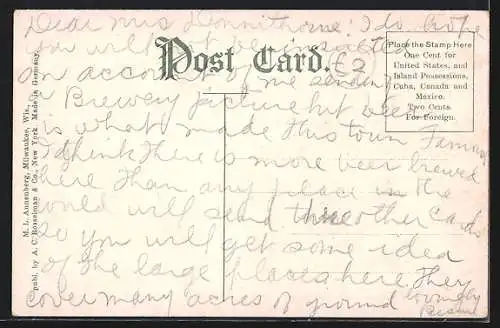 Dear Mrs Donnithorne: I do hope
you will not be insulted
on account of me sending
a Brewery picture but beer
is what made this town Famous
I think there is more beer brewed
here than any place in the
world will send three other cards
so you will get some idea
of the large places here. They
cover many acres of ground
lovingly
Post Card.
£2
Place the Stamp Here
One Cent for
United States, and
Island Possessions,
Cuba, Canada and
Mexico.
Two Cents.
For Foreign.
M. L. Annenberg, Milwaukee, Wis.,
publ. by A. C. Bosselman & Co., New York Made in Germany.